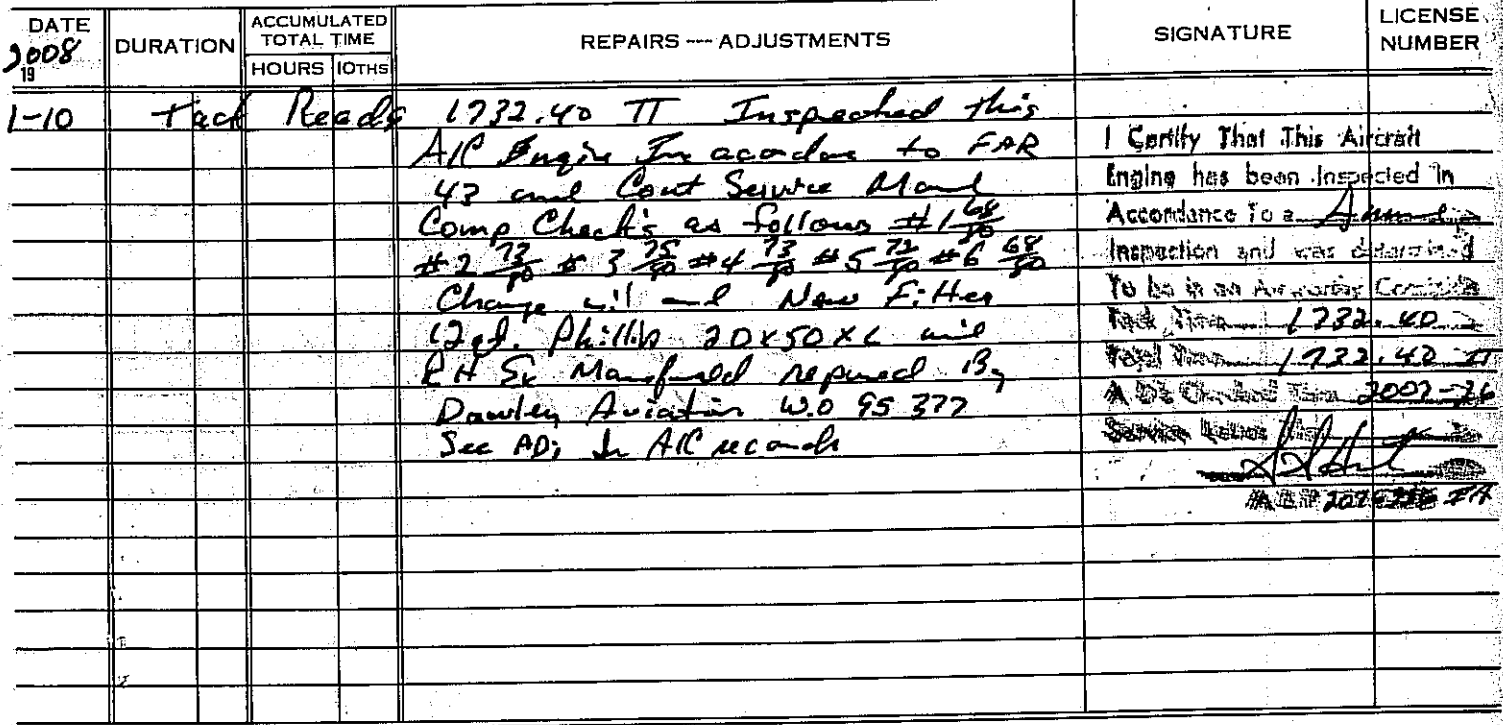 DATE
2008
19
DURATION
ACCUMULATED
TOTAL TIME
HOURS 10THS
REPAIRS --- ADJUSTMENTS
SIGNATURE
LICENSE
NUMBER
1-10 Tack Reads 1732.40 TT Inspected this
A/C Engine In acordance to FAR
43 and Cont Service Manl
Comp Check's as follows #1 68/80
#2 73/80 #3 75/80 #4 73/80 #5 72/80 #6 68/80
Change oil and New Filter
12 qt. Phillip 20X50XC oil
RH Ex Manifold repaired By
Dawley Aviation W.O 95377
See AD; In A/C records
I Certify That This Aircraft
Engine has been Inspected in
Accordance To a Annual
Inspection and was determined
To be in an Airworthy Condition
Tack Time 1732.40
Total Time 1732.40 TT
A D's Checked Thru 2007-26
Service Letters Thru
A & P IA